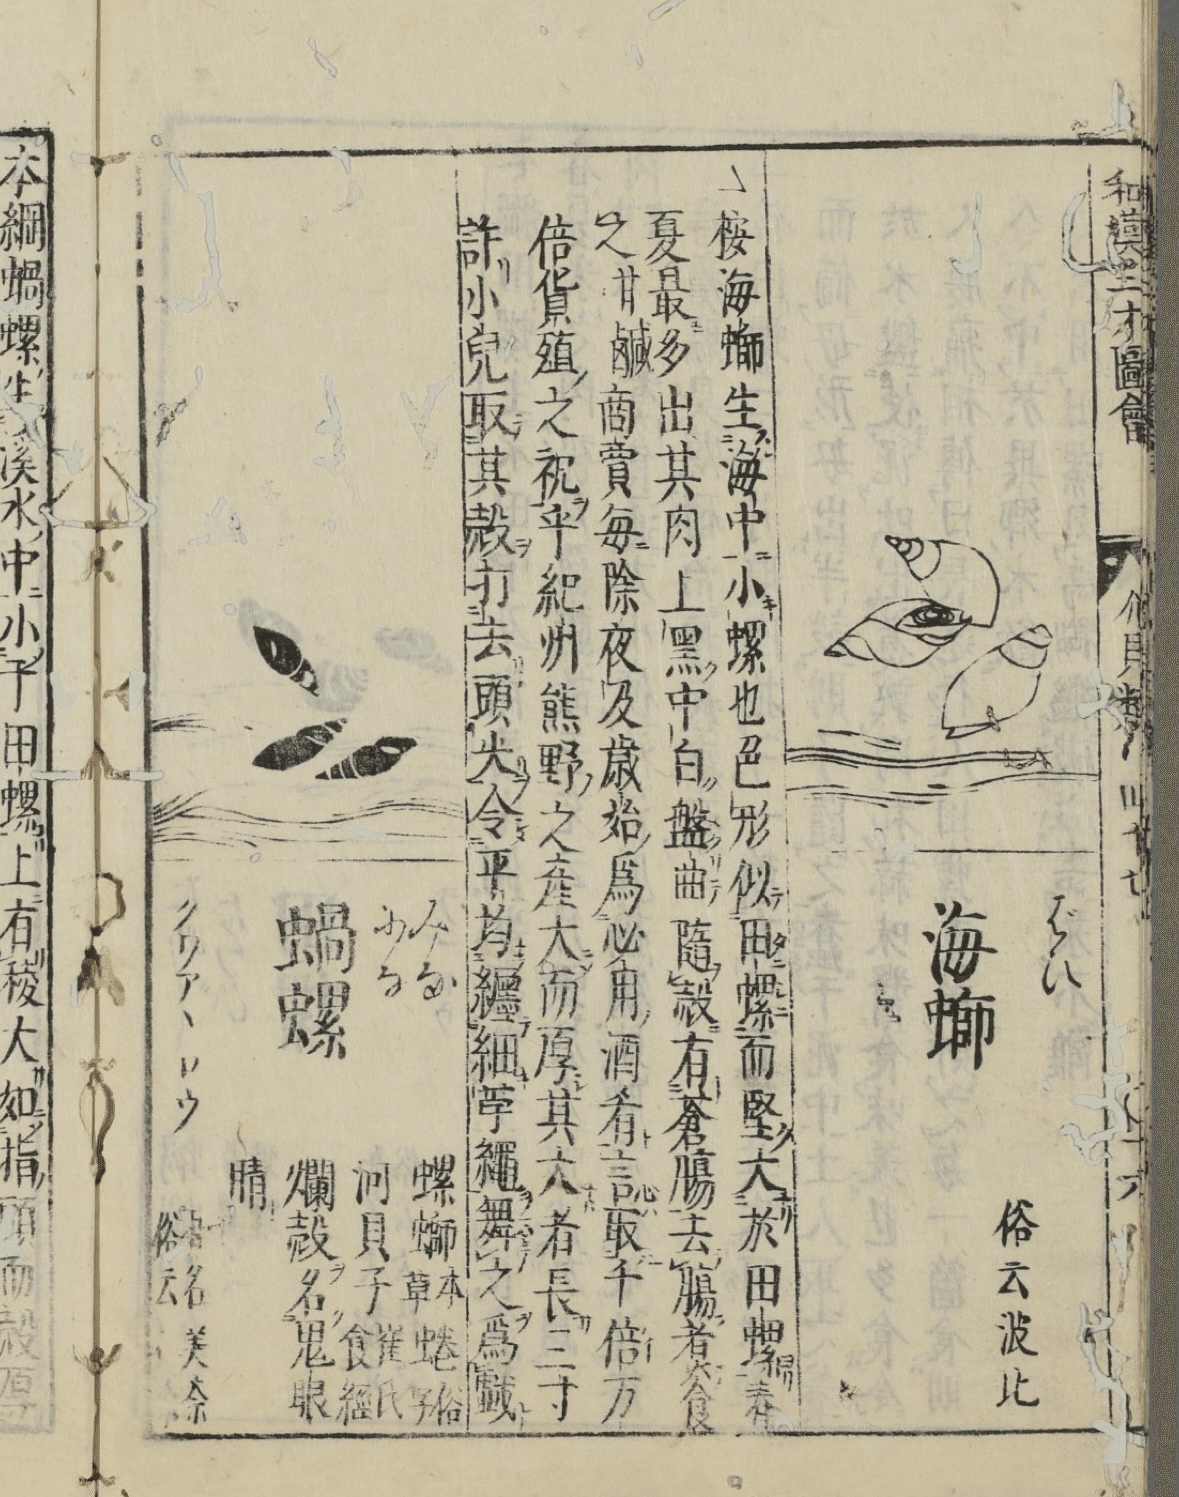 和漢三才圖會
介貝類 四十七
ばい
海螄
俗云波比
按海螄生海中小螺也色形似田螺而堅大於田螺春
夏最多出其肉上黑中白盤曲隨殻有蒼膓去膓者食
之甘鹹商賣毎除夜及歳始爲必用酒肴言取千倍万
倍貨殖之祝乎紀州熊野之産大而厚其大者長三寸
許小兒取其殻打去頭尖令平均纏細苧繩舞之爲戲
みな
蝸螺
クワアヽ ロウ
螺螄 本草 蜷 俗子
河貝子 崔氏食經
爛殻名鬼眼
睛
和名美奈
俗云
本綱蝸螺生溪水中小于田螺上有稜大如指頭而殻厚